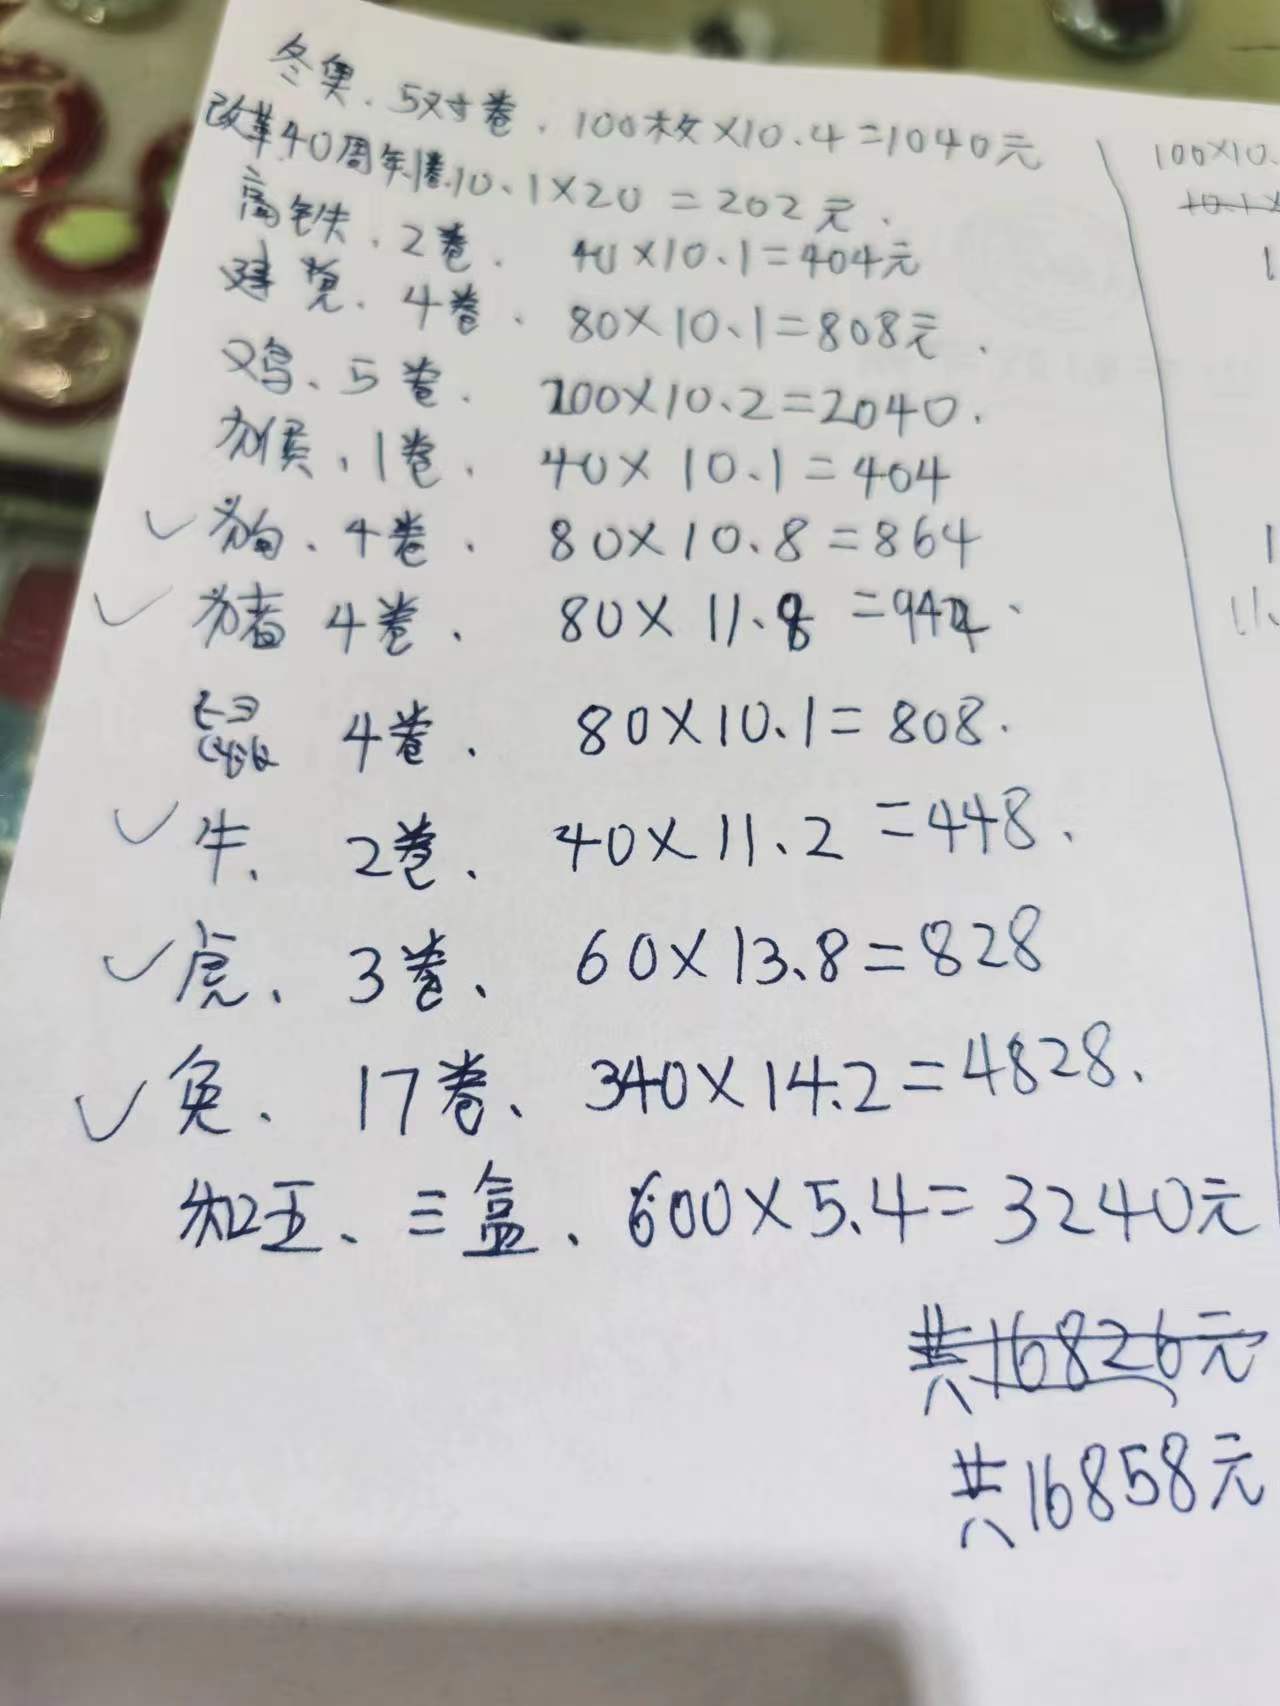 冬奥、5对卷、100枚×10.4=1040元
改革40周年1卷、10.1×20=202元、
高铁、2卷、40×10.1=404元
建党、4卷、80×10.1=808元、
鸡、5卷、200×10.2=2040.
猴、1卷、40×10.1=404
✓狗、4卷、80×10.8=864
✓猪 4卷、80×11.8=944、
鼠 4卷、80×10.1=808.
✓牛、2卷、40×11.2=448、
✓虎、3卷、60×13.8=828
✓兔、17卷、340×14.2=4828、
和五、三盒、600×5.4=3240元
共16826元
共16858元
100×10.
10.1×
1
1
11.